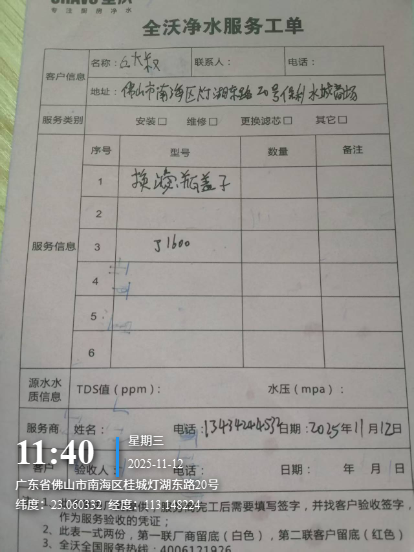 CHAVO 全沃
专注厨房净水
全沃净水服务工单
客户信息 名称：丘大叔 联系人： 电话：
地址：佛山市南海区灯湖东路20号保利水城商场
服务类别 安装□ 维修□ 更换滤芯□ 其它□
服务信息 序号 型号 数量 备注
1 换 瓶盖子
2
3 J1600
4
5
6
源水水质信息 TDS值（ppm）： 水压（mpa）：
服务商 姓名： 电话： 日期：2025年11月12日
客户 验收人： 电话： 日期： 年 月 日
11:40 星期三
2025-11-12
广东省佛山市南海区桂城灯湖东路20号
纬度：23.060332 经度：113.148224
完工后需要填写签字，并找客户验收签字，
作为服务验收的凭证；
2、此表一式两份，第一联厂商留底（白色），第二联客户留底（红色）
3、全沃全国服务热线：4006121926